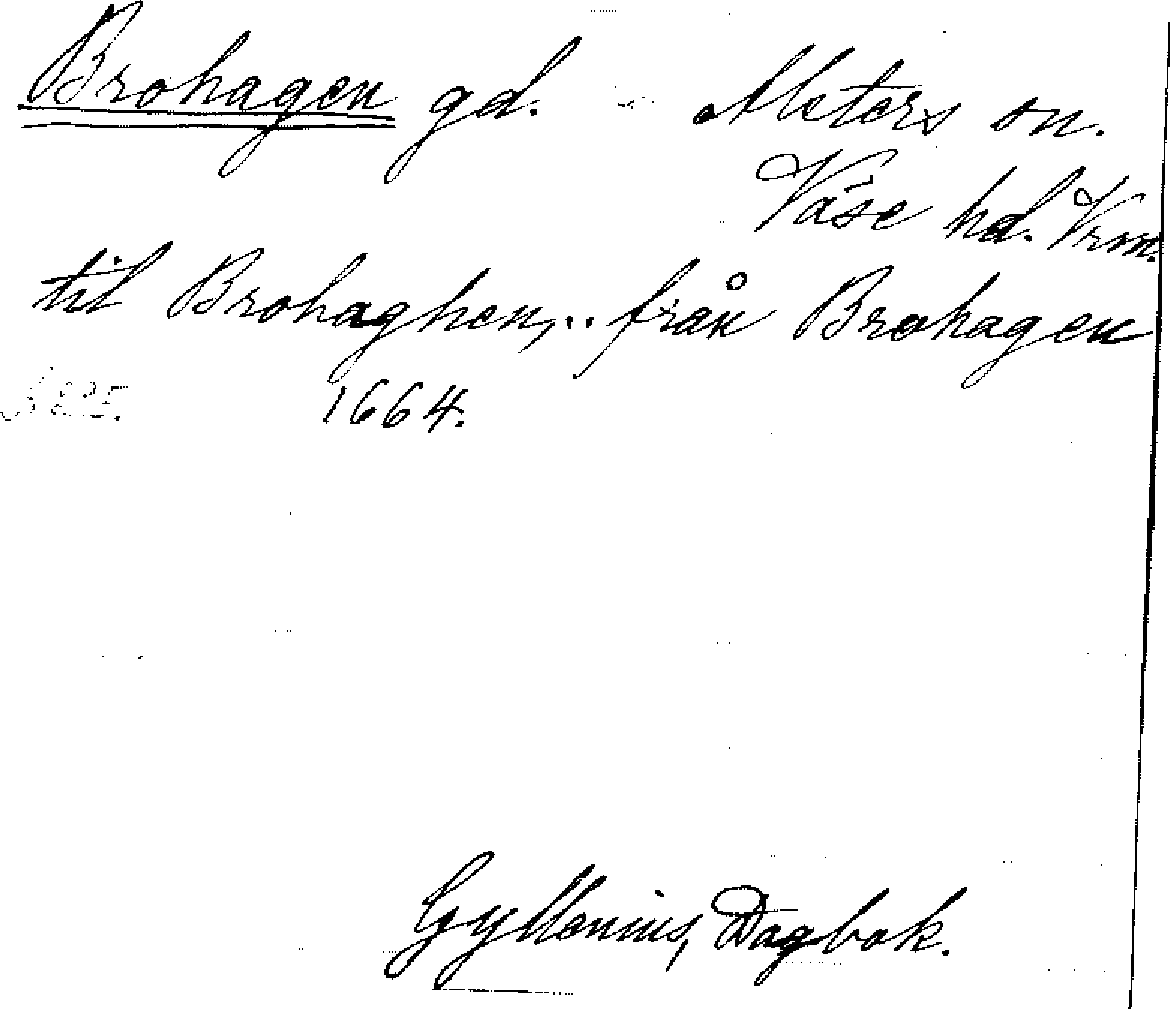 Brohagen gd. - Alsters sn.
Väse hd. Vrm.
til Brohaghen, .. från Brohagen
1664.
Gyllenius, Dagbok.